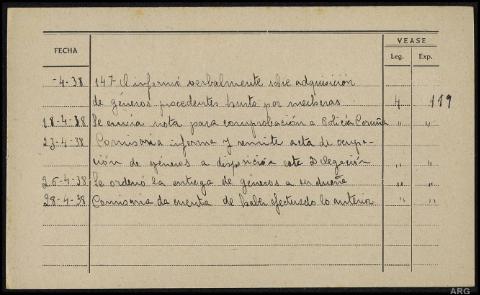 VEASE
FECHA Leg. Exp.
-4-38 147- Il informó verbalmente sobre adquisición
de géneros procedentes hurto por mecheras 4 119
18-4-38 Se envia nota para comprobación a Policía Coruña " "
23-4-38 Comisaria informa y remite acta de ocupa-
ción de géneros a disposición esta Delegación " "
26-4-38 Se ordenó la entrega de géneros a su dueño " "
28-4-38 Comisaria da cuenta de haber efectuado lo anterior " "
ARG